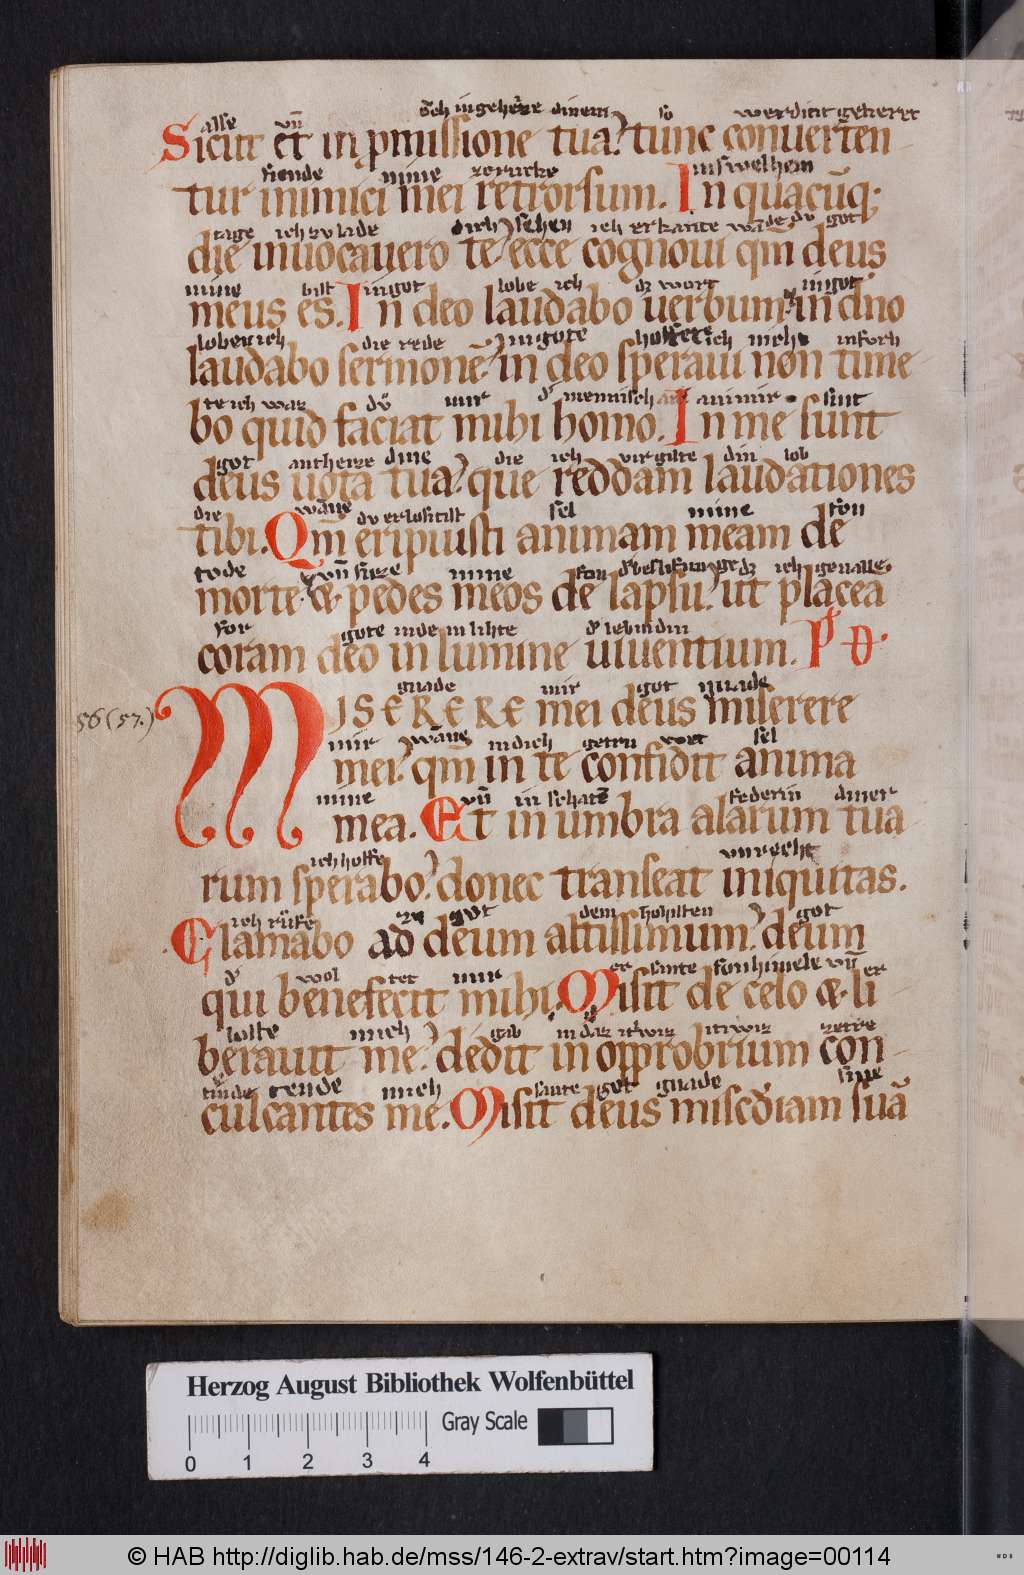 alse vn̄ och in gehẽze dinem so werdint gekerret
Sicut et in p̱missione tua. tunc conuerten-
fiende mine zerucke inswelhem
tur inimici mei retrorsum. In quacūq;
tage ich zv lade dich sehen ich erkante wāde dv got
die inuocauero te ecce cognoui qm̄ deus
mine bist in got lobe ich dz wort in got
meus es. In deo laudabo uerbum in dn̄o
loben ich die rede in gote hoffete ich nicht
laudabo sermonē. in deo speraui non time-
te ich waz dv̊ mir d' mennisch an mir sint
bo quid faciat mihi homo. In me sunt
got antheize dine die ich virgilte din lob
deus uota tua. que reddam laudationes
die wāne dv erlositist sel mine fon
tibi. Qm̄ eripuisti animam meam de
tode vn̄ fůze mine fon dz ich geualle
morte & pedes meos de lapsu. ut placea
for gote inde in lihte d' lebindin
coram deo in lumine uiuentium. P̱s D.
gnade mir got gnade
56 (57.) MISERERE mei deus miserere
mir wāne in dich getru wet sel
mei. qm̄ in te confidit anima
mine vn̄ in schatē federin diner
mea. Et in umbra alarum tua-
ich hoffe vnrecht
rum sperabo. donec transeat iniquitas.
ich růfe zu got dem hohisten got
Clamabo ad deum altissimum. deum
d' wol tet mir er sante fon himele vn̄ er
qui benefecit mihi. Misit de celo & li-
loste mich gab in daz itwiz zetre
berauit me. dedit in opprobrium con-
tinde mich sante got gnade sine
culcantes me. Misit deus misc̄diam suā
Herzog August Bibliothek Wolfenbüttel
Gray Scale
0 1 2 3 4
© HAB http://diglib.hab.de/mss/146-2-extrav/start.htm?image=00114